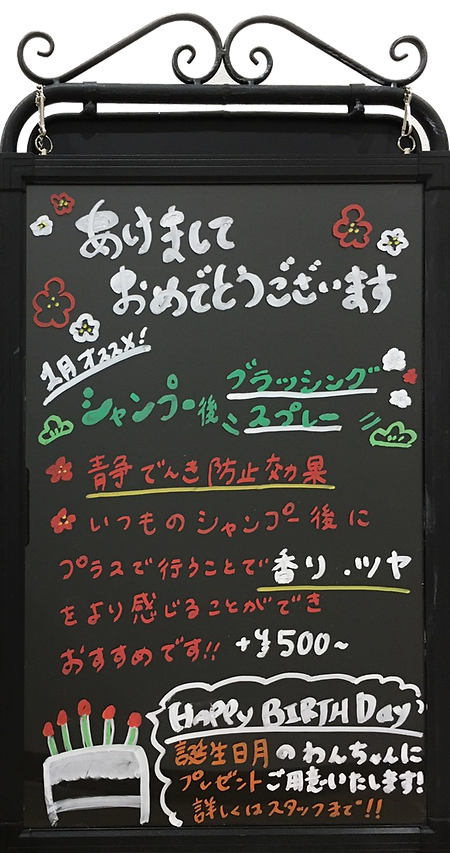 あけまして
おめでとうございます
1月オススメ!
ブラッシング
シャンプー後ミスプレー
青争でんき防止効果
いつものシャンプー後に
プラスで行うことで香り.ツヤ
をより感じることができ
おすすめです!! +¥500~
HaPPy BIRTH Day
誕生日月のわんちゃんに
プレゼントご用意いたします!
詳しくはスタッフまで!!